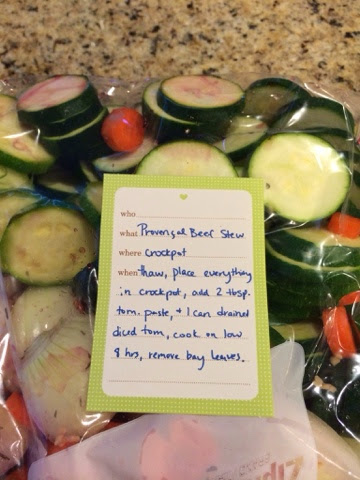 who
what Provençal Beef Stew
where crockpot
when thaw, place everything
in crockpot, add 2 tbsp.
tom. paste, + 1 can drained
diced tom, cook on low
8 hrs, remove bay leaves.